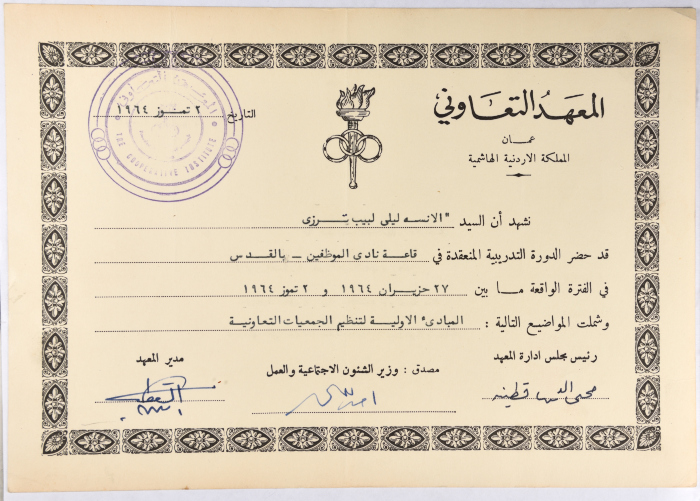 المعهد التعاوني
عمان
المملكة الاردنية الهاشمية
التاريخ ٢ تموز ١٩٦٤
THE COOPERATIVE INSTITUTE
نشهد أن السيد "الانسه ليلى لبيب ترزى
قد حضر الدورة التدريبية المنعقدة في قاعة نادى الموظفين - بالقدس
في الفترة الواقعة ما بين ٢٧ حزيران ١٩٦٤ و ٢ تموز ١٩٦٤
وشملت المواضيع التالية : المبادئ الاولية لتنظيم الجمعيات التعاونية
رئيس مجلس ادارة المعهد
مصدق : وزير الشئون الاجتماعية والعمل
مدير المعهد